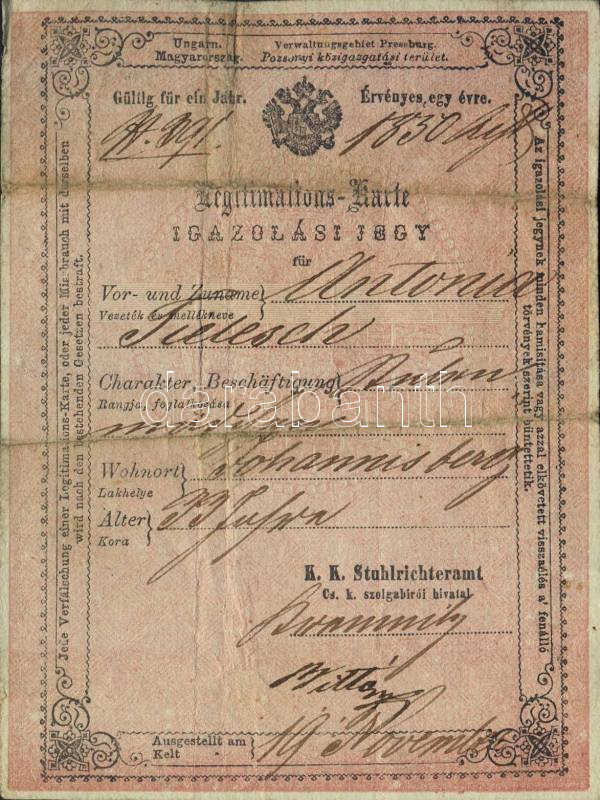 Ungarn. Verwaltungsgebiet Pressburg.
Magyarország. Pozsonyi közigazgatási terület.
Gültig für ein Jahr. Érvényes, egy évre.
Legitimations-Karte
IGAZOLÁSI JEGY
für
Vor- und Zuname Antonia
Vezeték és mellékneve
Charakter, Beschäftigung
Rangja, foglalkozása
darabanth
Wohnort Johannisberg
Lakhelye
Alter 33 Jahre
Kora
K. K. Stuhlrichteramt
Cs. k. szolgabirói hivatal
Ausgestellt am 18 November
Kelt
Jede Verfälschung einer Legitimations-Karte, oder jeder Missbrauch mit derselben
wird nach den bestehenden Gesetzen bestraft.
Az igazolási jegynek minden hamisitása vagy azzal elkövetett visszaélés a' fenálló
törvények szerint büntettetik.